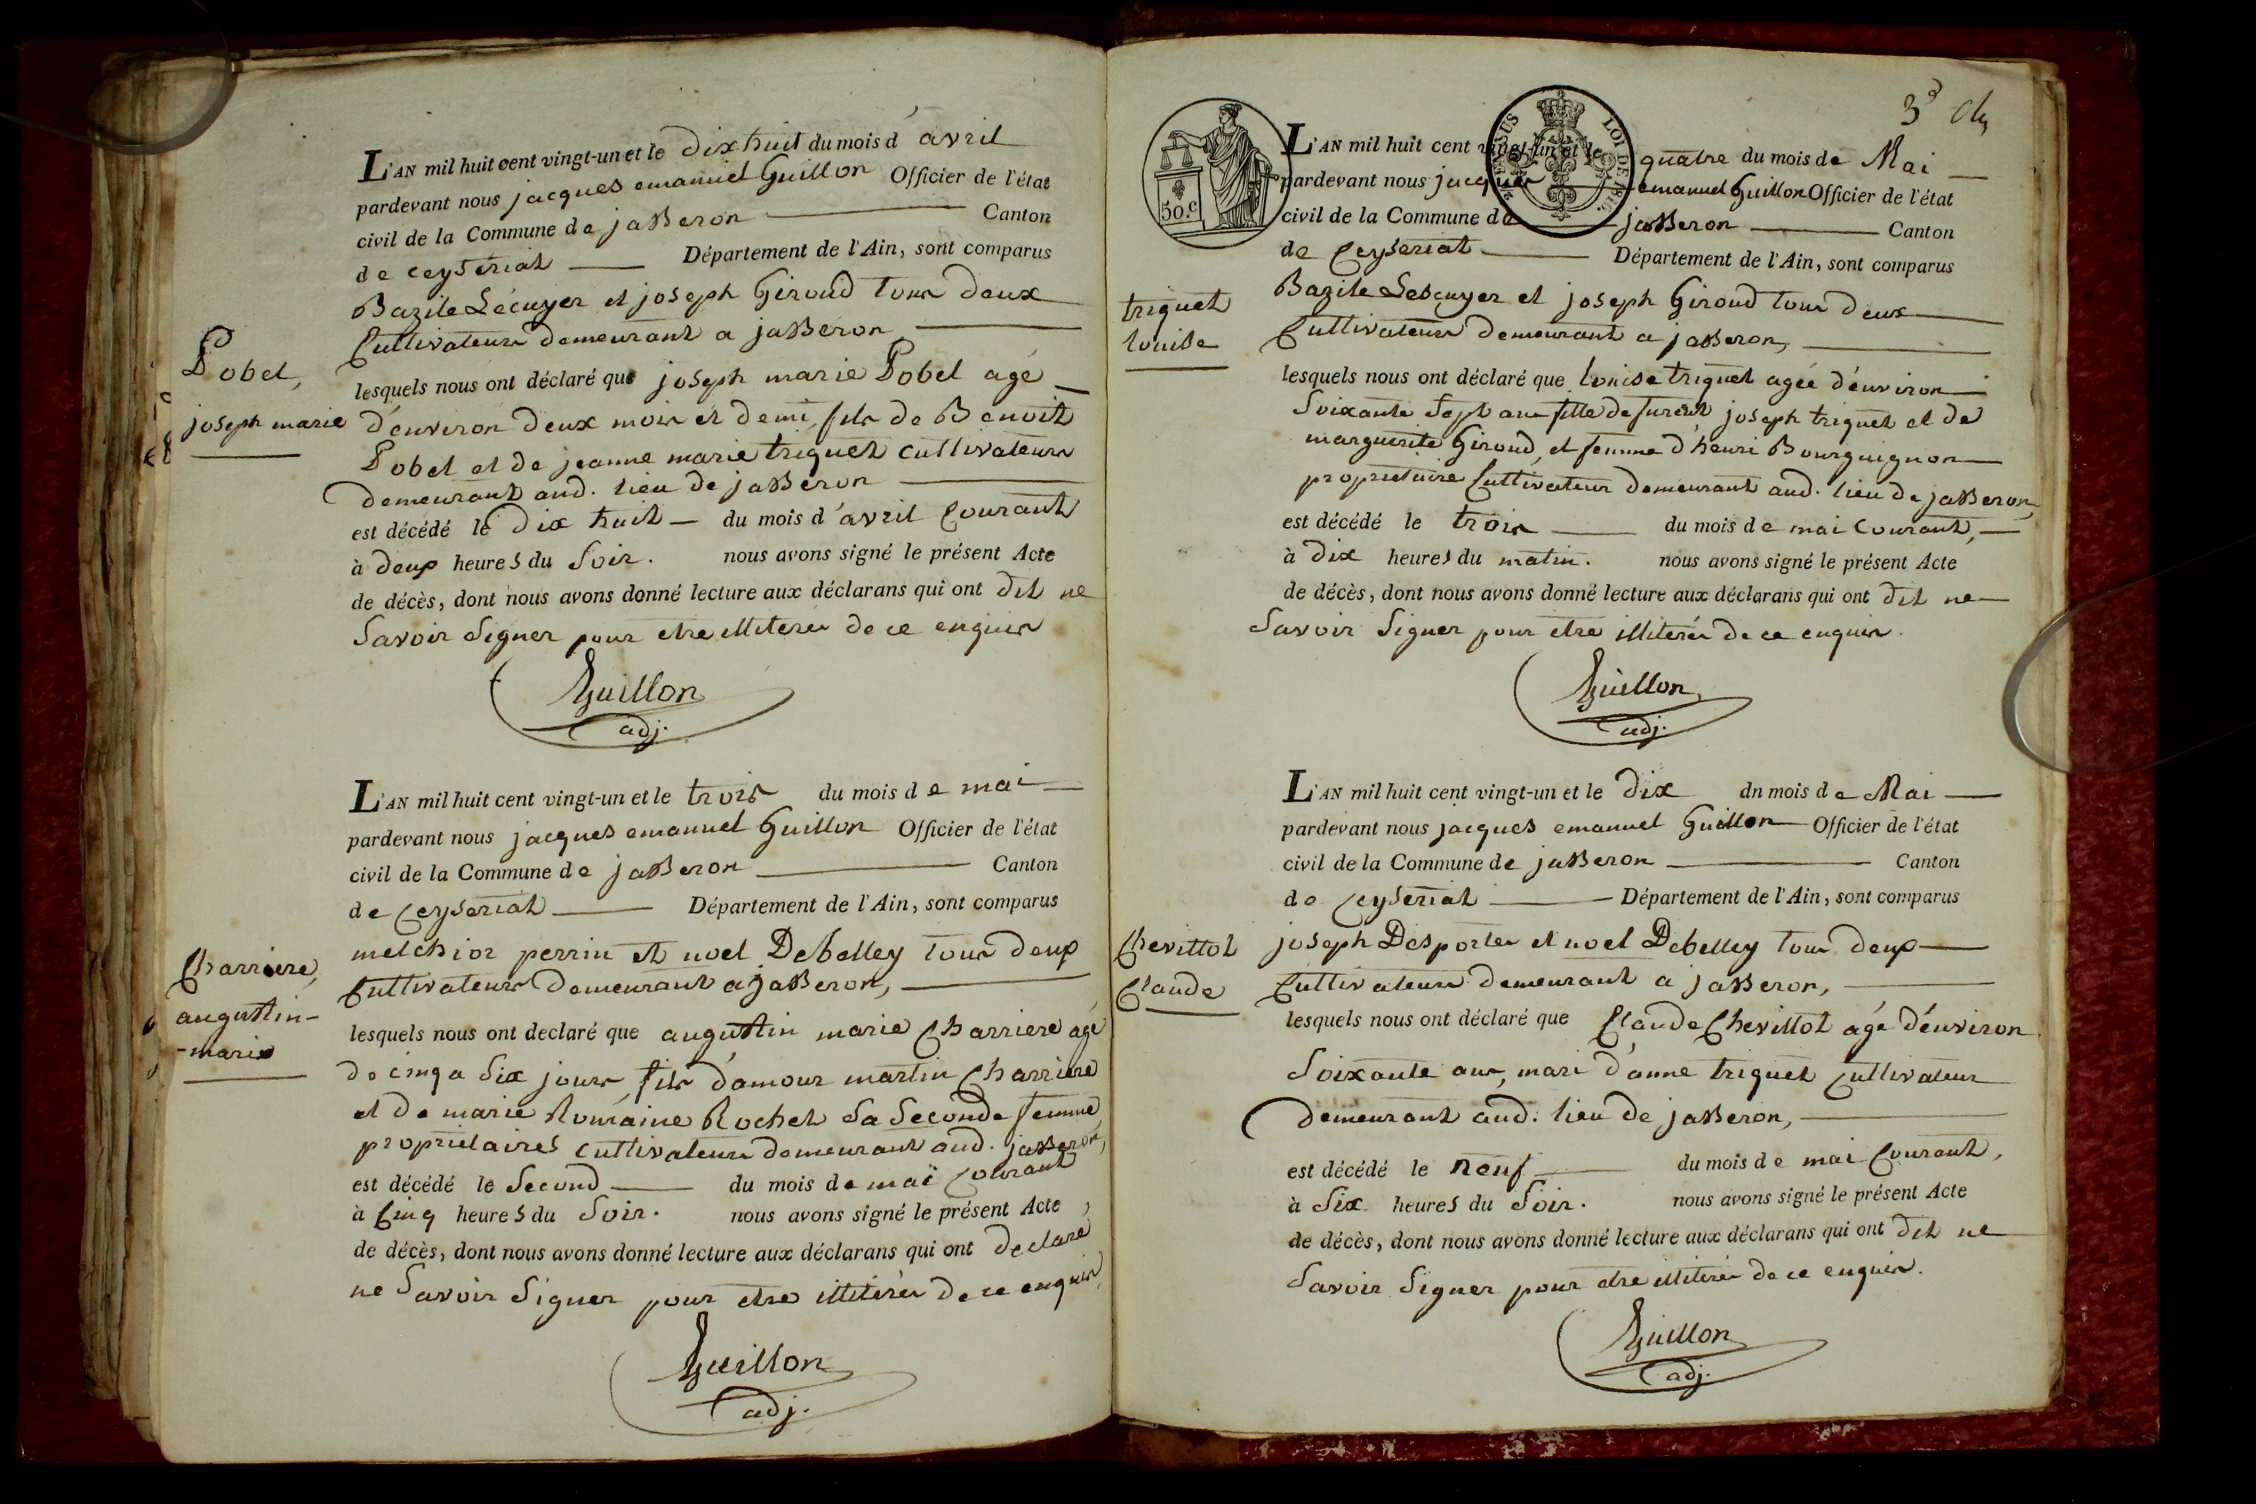 L'AN mil huit cent vingt-un et le dix huit du mois d'avril
pardevant nous jacques emanuel Guillon Officier de l'état
civil de la Commune de jasseron Canton
de ceyseriat Département de l'Ain, sont comparus
Bazile Lécuyer et joseph Giroud tous deux
Cultivateurs demeurant a jasseron
Pobel,
joseph marie
lesquels nous ont déclaré que joseph marie Pobel agé
d'environ deux mois et demi, fils de Benoit
Pobel et de jeanne marie triquet cultivateurs
demeurant aud. lieu de jasseron
est décédé le dix huit du mois d'avril Courant
à deux heures du Soir. nous avons signé le présent Acte
de décès, dont nous avons donné lecture aux déclarans qui ont dit ne
Savoir Signer pour etre illiterés de ce enquis
Guillon
adj.
L'AN mil huit cent vingt-un et le trois du mois de mai
pardevant nous jacques emanuel Guillon Officier de l'état
civil de la Commune de jasseron Canton
de Ceyseriat Département de l'Ain, sont comparus
melchior perrin et noel Debelley tous deux
Cultivateurs demeurant a jasseron,
Charriere,
augustin-
-marie
lesquels nous ont declaré que augustin marie Charriere agé
de cinq a Six jours, fils d'amour martin Charriere
et de marie Romaine Rochet Sa Seconde femme,
proprietaires cultivateurs demeurant aud. jasseron,
est décédé le Second du mois de maï Courant
à Cinq heures du Soir. nous avons signé le présent Acte
de décès, dont nous avons donné lecture aux déclarans qui ont declaré
ne Savoir Signer pour etre illiterés de ce enquis,
Guillon
adj.
50.c
LOI DE 1816.
L'AN mil huit cent vingt-un et le quatre du mois de Mai
pardevant nous jacques emanuel Guillon Officier de l'état
civil de la Commune de jasseron Canton
de Ceyseriat Département de l'Ain, sont comparus
Bazile Lescuyer et joseph Giroud tous deux
Cultivateurs demeurant a jasseron,
triquet
louise
lesquels nous ont déclaré que louise triquet agée d'environ
Soixante Sept ans fille de furent joseph triquet et de
marguerite Giroud, et femme d'henri Bourguignon
proprietaire Cultivateur demeurant aud. lieu de jasseron,
est décédé le trois du mois de mai Courant,
à dix heures du matin. nous avons signé le présent Acte
de décès, dont nous avons donné lecture aux déclarans qui ont dit ne
Savoir Signer pour etre illiterés de ce enquis.
Guillon
adj.
L'AN mil huit cent vingt-un et le dix dn mois de Mai
pardevant nous jacques emanuel Guillon Officier de l'état
civil de la Commune de jasseron Canton
de Ceyseriat Département de l'Ain, sont comparus
joseph Desportes et noel Debelley tous deux
Cultivateurs demeurant a jasseron,
Chevillot
Claude
lesquels nous ont déclaré que Claude Chevillot agé d'environ
Soixante ans, mari d'anne triquet Cultivateur
demeurant aud. lieu de jasseron,
est décédé le neuf du mois de mai Courant,
à Six heures du Soir. nous avons signé le présent Acte
de décès, dont nous avons donné lecture aux déclarans qui ont dit ne
Savoir Signer pour etre illiterés de ce enquis.
Guillon
adj.